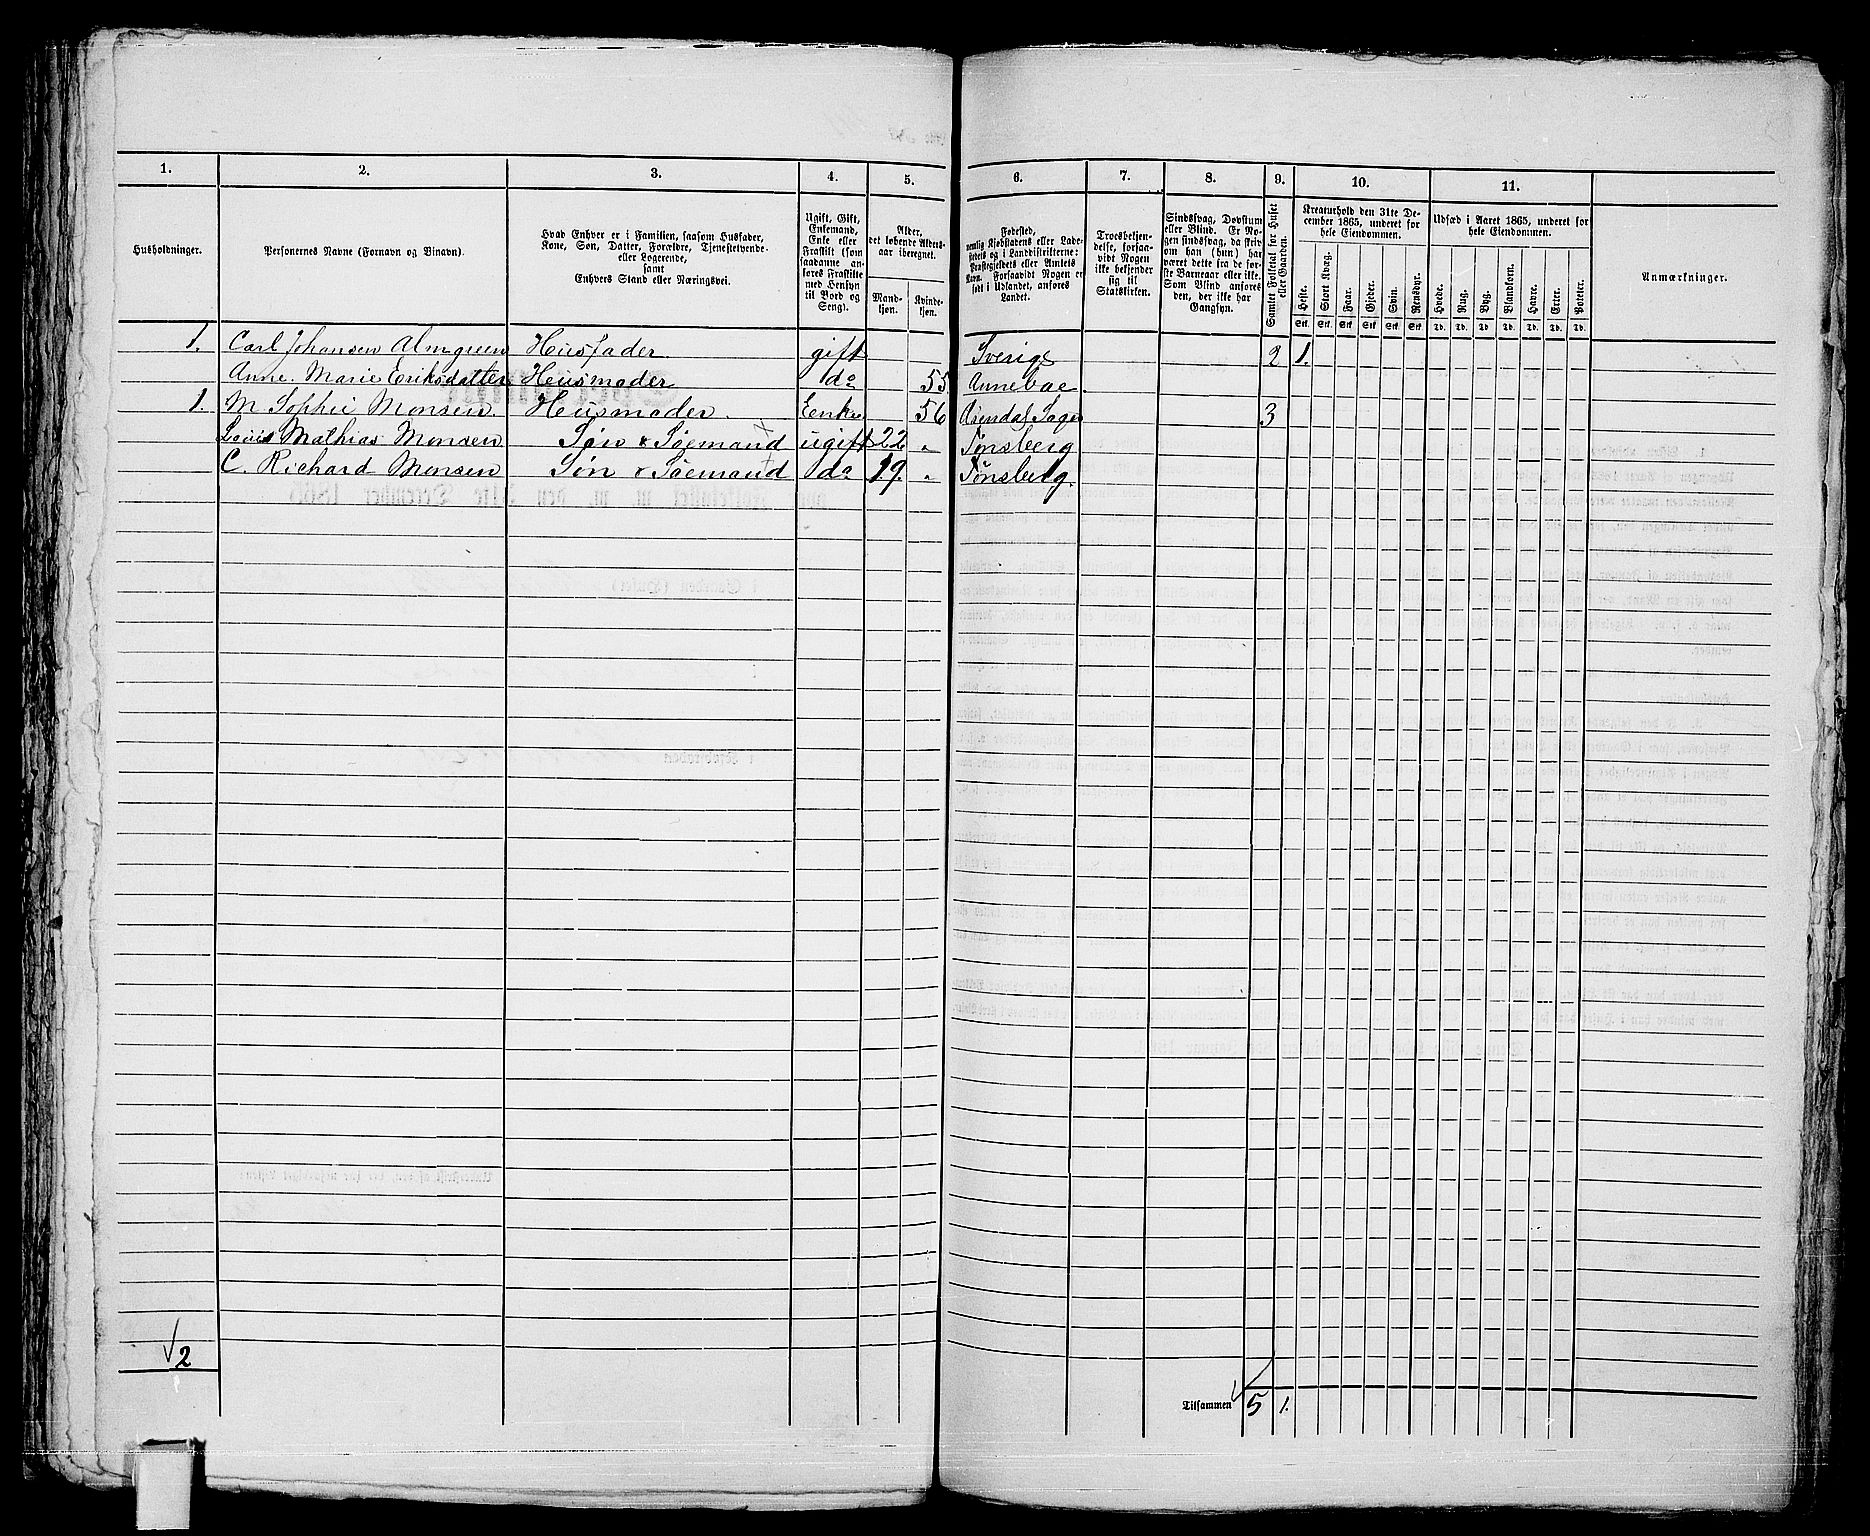 1.
2.
3.
4.
5.
6.
7.
8.
9.
10.
11.
Husholdninger.
Personernes Navne (Fornavn og Binavn).
Hvad Enhver er i Familien, saasom Husfader,
Kone, Søn, Datter, Forældre, Tjenestetyende
eller Logerende,
samt
Enhvers Stand eller Næringsvei.
Ugift, Gift,
Enkemand,
Enke eller
Fraskilt (som
saadanne an-
føres Fraskilte
med Hensyn
til Bord og
Seng).
Alder,
det løbende Alders-
aar iberegnet.
Mand-
kjøn.
Kvinde-
kjøn.
Fødested,
nemlig Kjøbstadens eller Lade-
stedets og i Landdistrikterne:
Præstegjeldets eller Amtets
Navn. Forsaavidt Nogen er
født i Udlandet, anføres
Landet.
Troesbekjen-
delse, forsaa-
vidt Nogen
ikke bekjender
sig til
Statskirken.
Sindssvag, Døvstum
eller Blind. Er No-
gen sindssvag, da skriv
om han (hun) har
været dette fra de før-
ste Barneaar eller ikke.
Som Blind anføres
den, der ikke har
Gangsyn.
Samlet Folketal for Huset
eller Gaarden.
Kreaturhold den 31te De-
cember 1865, underet for
hele Eiendommen.
Heste. Stort Kvæg. Faar. Gjeder. Svin. Rensdyr.
Stk. Stk. Stk. Stk. Stk. Stk.
Udsæd i Aaret 1865, underet for
hele Eiendommen.
Hvede. Rug. Byg. Blandkorn. Havre. Erter. Poteter.
Td. Td. Td. Td. Td. Td. Td.
Anmærkninger.
1. Carl Johansen Almgreen Husfader gift Sverige 2 1.
Anne Marie Eriksdatter Husmoder do 55 Annebae
1. M Sophie Monsen. Husmoder. Enke 56 3
Louis Mathias Monsen Søn & Søemand ugift 22 " Tønsberg
C. Richard Monsen Søn & Søemand do 19. " Tønsberg.
2
Tilsammen 5 1.